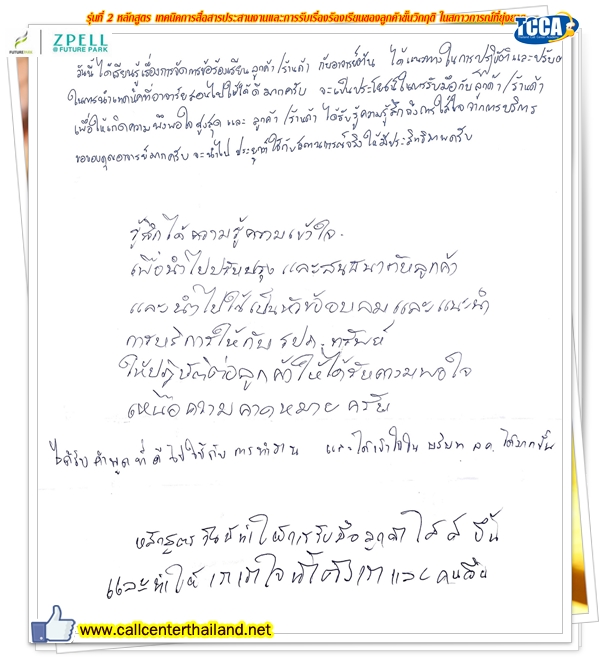 รุ่นที่ 2 หลักสูตร เทคนิคการสื่อสารประสานงานและการรับเรื่องร้องเรียนของลูกค้าขั้นวิกฤติ ในสภาวการณ์ที่ยุ่ง
FUTURE PARK
ZPELL
@ FUTURE PARK
TCCA
วันนี้ ได้เรียนรู้เรื่องการจัดการข้อร้องเรียน ลูกค้า /ร้านค้า กับอาจารย์ ได้แนวทางในการปฏิบัติ และปรับ
ในการนำเทคนิคที่อาจารย์สอนไปใช้ได้ดีมากครับ จะเป็นประโยชน์ในการรับมือกับลูกค้า /ร้านค้า
เพื่อให้เกิดความพึงพอใจสูงสุด และ ลูกค้า /ร้านค้า ได้รับรู้ความรู้สึกถึงการใส่ใจ จากการบริการ
ขอขอบคุณอาจารย์มากครับ จะนำไป ประยุกต์ใช้กับสถานการณ์จริง ให้มีประสิทธิภาพครับ
รู้สึกได้ความรู้ความเข้าใจ.
เพื่อนำไปปรับปรุง และสนทนากับลูกค้า
และนำไปใช้เป็นหัวข้ออบรม และแนะนำ
การบริการให้กับ รปภ. ทรัพย์
ให้ปฏิบัติต่อลูกค้าให้ได้รับความพอใจ
เหนือความคาดหมาย ครับ
ได้รับ คำพูด ที่ ดี ไปใช้กับ การทำงาน และได้เข้าใจใน บริบท ลค. ได้มากขึ้น
หลักสูตรวันนี้ทำให้การรับมือลูกค้าได้ดี ขึ้น
และทำให้ เราเข้าใจทั้งตัวเราและ คนอื่น
www.callcenterthailand.net